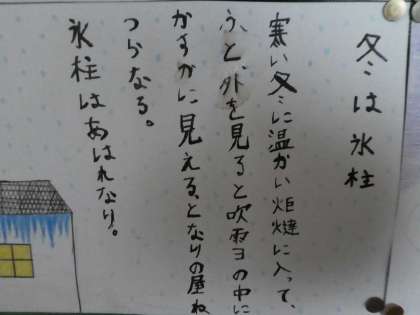 冬は氷柱
寒い冬に温かい炬燵に入って、
ふと、外を見ると吹雪の中に
かすかに見える、となりの屋ね
つらなる。
氷柱はあはれなり。